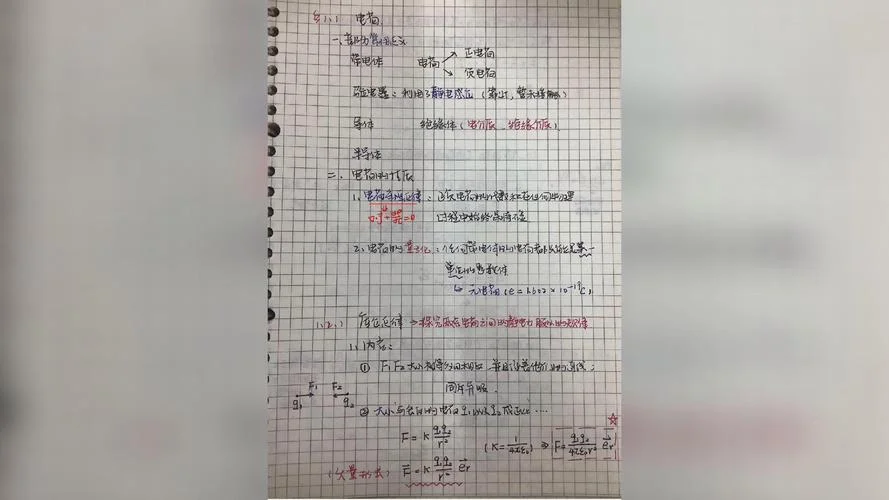 §1.1 电荷
一、基本力学定义
带电体 电荷 正电荷
负电荷
验电器：利用了静电感应（
导体 绝缘体（电介质、绝缘介质）
半导体
二、电荷的性质
1、电荷守恒定律：正负电荷的代数和在任何物理
过程中始终保持不变
2、电荷的量子化：任何带电体的电荷都只能是某一
单位的整数倍
↳ 元电荷 (e=1.602×10⁻¹⁹C)
1.2.1 库仑定律 → 探究点电荷之间的静电力服从的规律
1、内容：
① F₁ F₂ 大小相等方向相反 并且沿着他们的连线；
同斥异吸
F₁ F₂
q₁ q₂
② 大小与各自的电荷 q₁ 以及 q₂ 成正比 ....
F = K q₁q₂/r² (K = 1/4πε₀) ⇒ F = q₁q₂/4πε₀r² e⃗r
(矢量形式) F⃗ = K q₁q₂/r² e⃗r